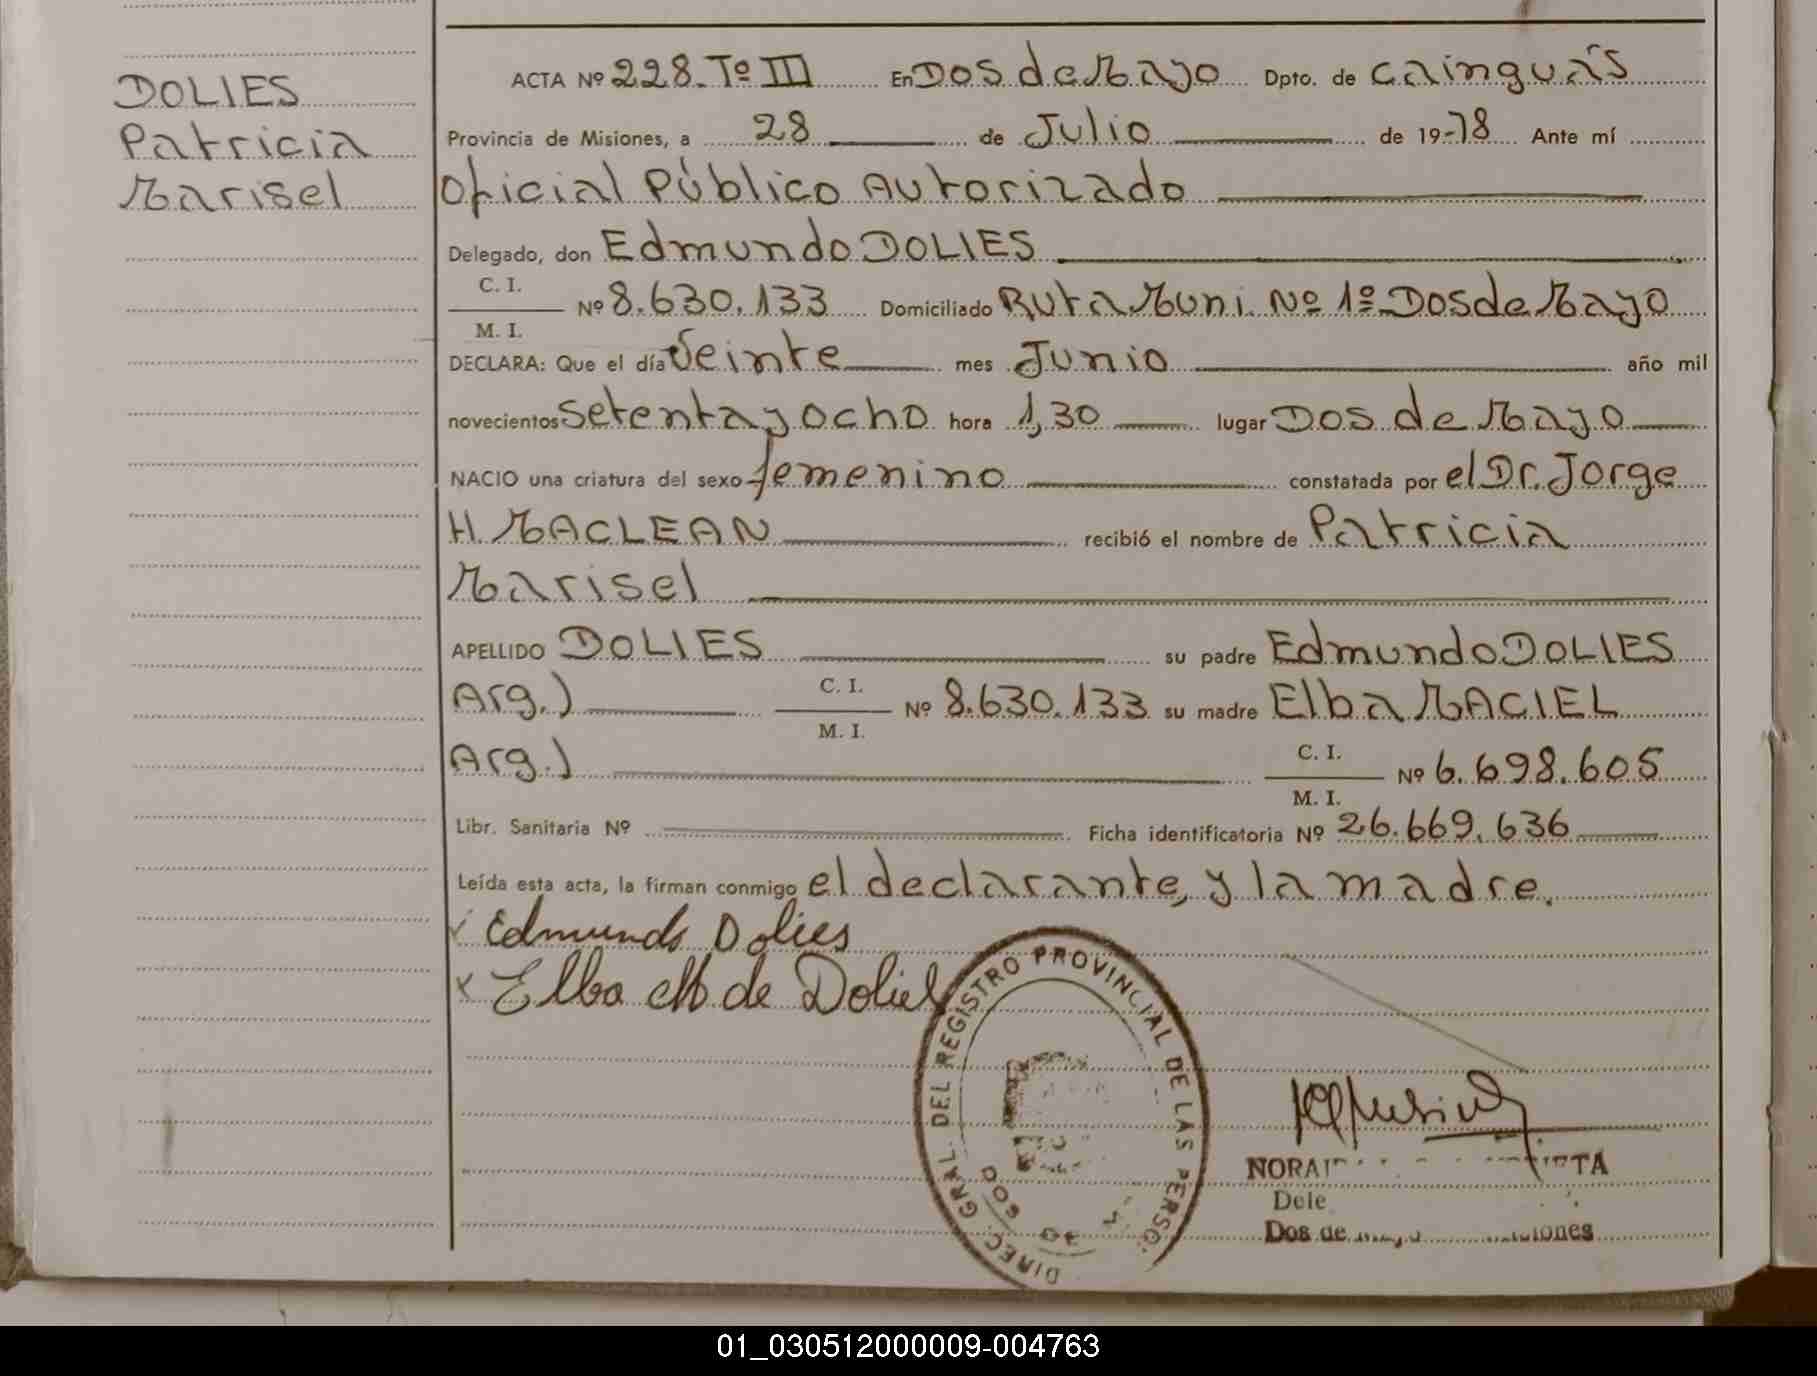 DOLIES
Patricia
Marisel
ACTA Nº 228-Tº III En Dos de Mayo Dpto. de Cainguás
Provincia de Misiones, a 28 de Julio de 19-78 Ante mí
Oficial Público Autorizado
Delegado, don Edmundo DOLIES
C. I.
M. I.
Nº 8.630.133 Domiciliado Ruta Muni. Nº 1º-Dos de Mayo
DECLARA: Que el día Veinte mes Junio año mil
novecientos setenta y ocho hora 1,30 lugar Dos de Mayo
NACIO una criatura del sexo femenino constatada por el Dr. Jorge
H. MACLEAN recibió el nombre de Patricia
Marisel
APELLIDO DOLIES su padre Edmundo DOLIES
Arg.) C. I. M. I. Nº 8.630.133 su madre Elba MACIEL
Arg.) C. I. M. I. Nº 6.698.605
Libr. Sanitaria Nº Ficha identificatoria Nº 26.669.636
Leída esta acta, la firman conmigo el declarante, y la madre.
Edmundo Dolies
x Elba M de Dolies
DIREC. GRAL. DEL REGISTRO PROVINCIAL DE LAS PERSO.
DOS DE
Dos de
01_030512000009-004763